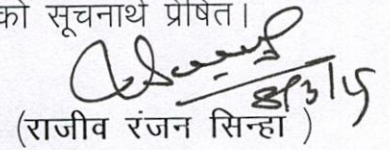 को सूचनार्थ प्रेषित।
8/3/15
(राजीव रंजन सिन्हा )